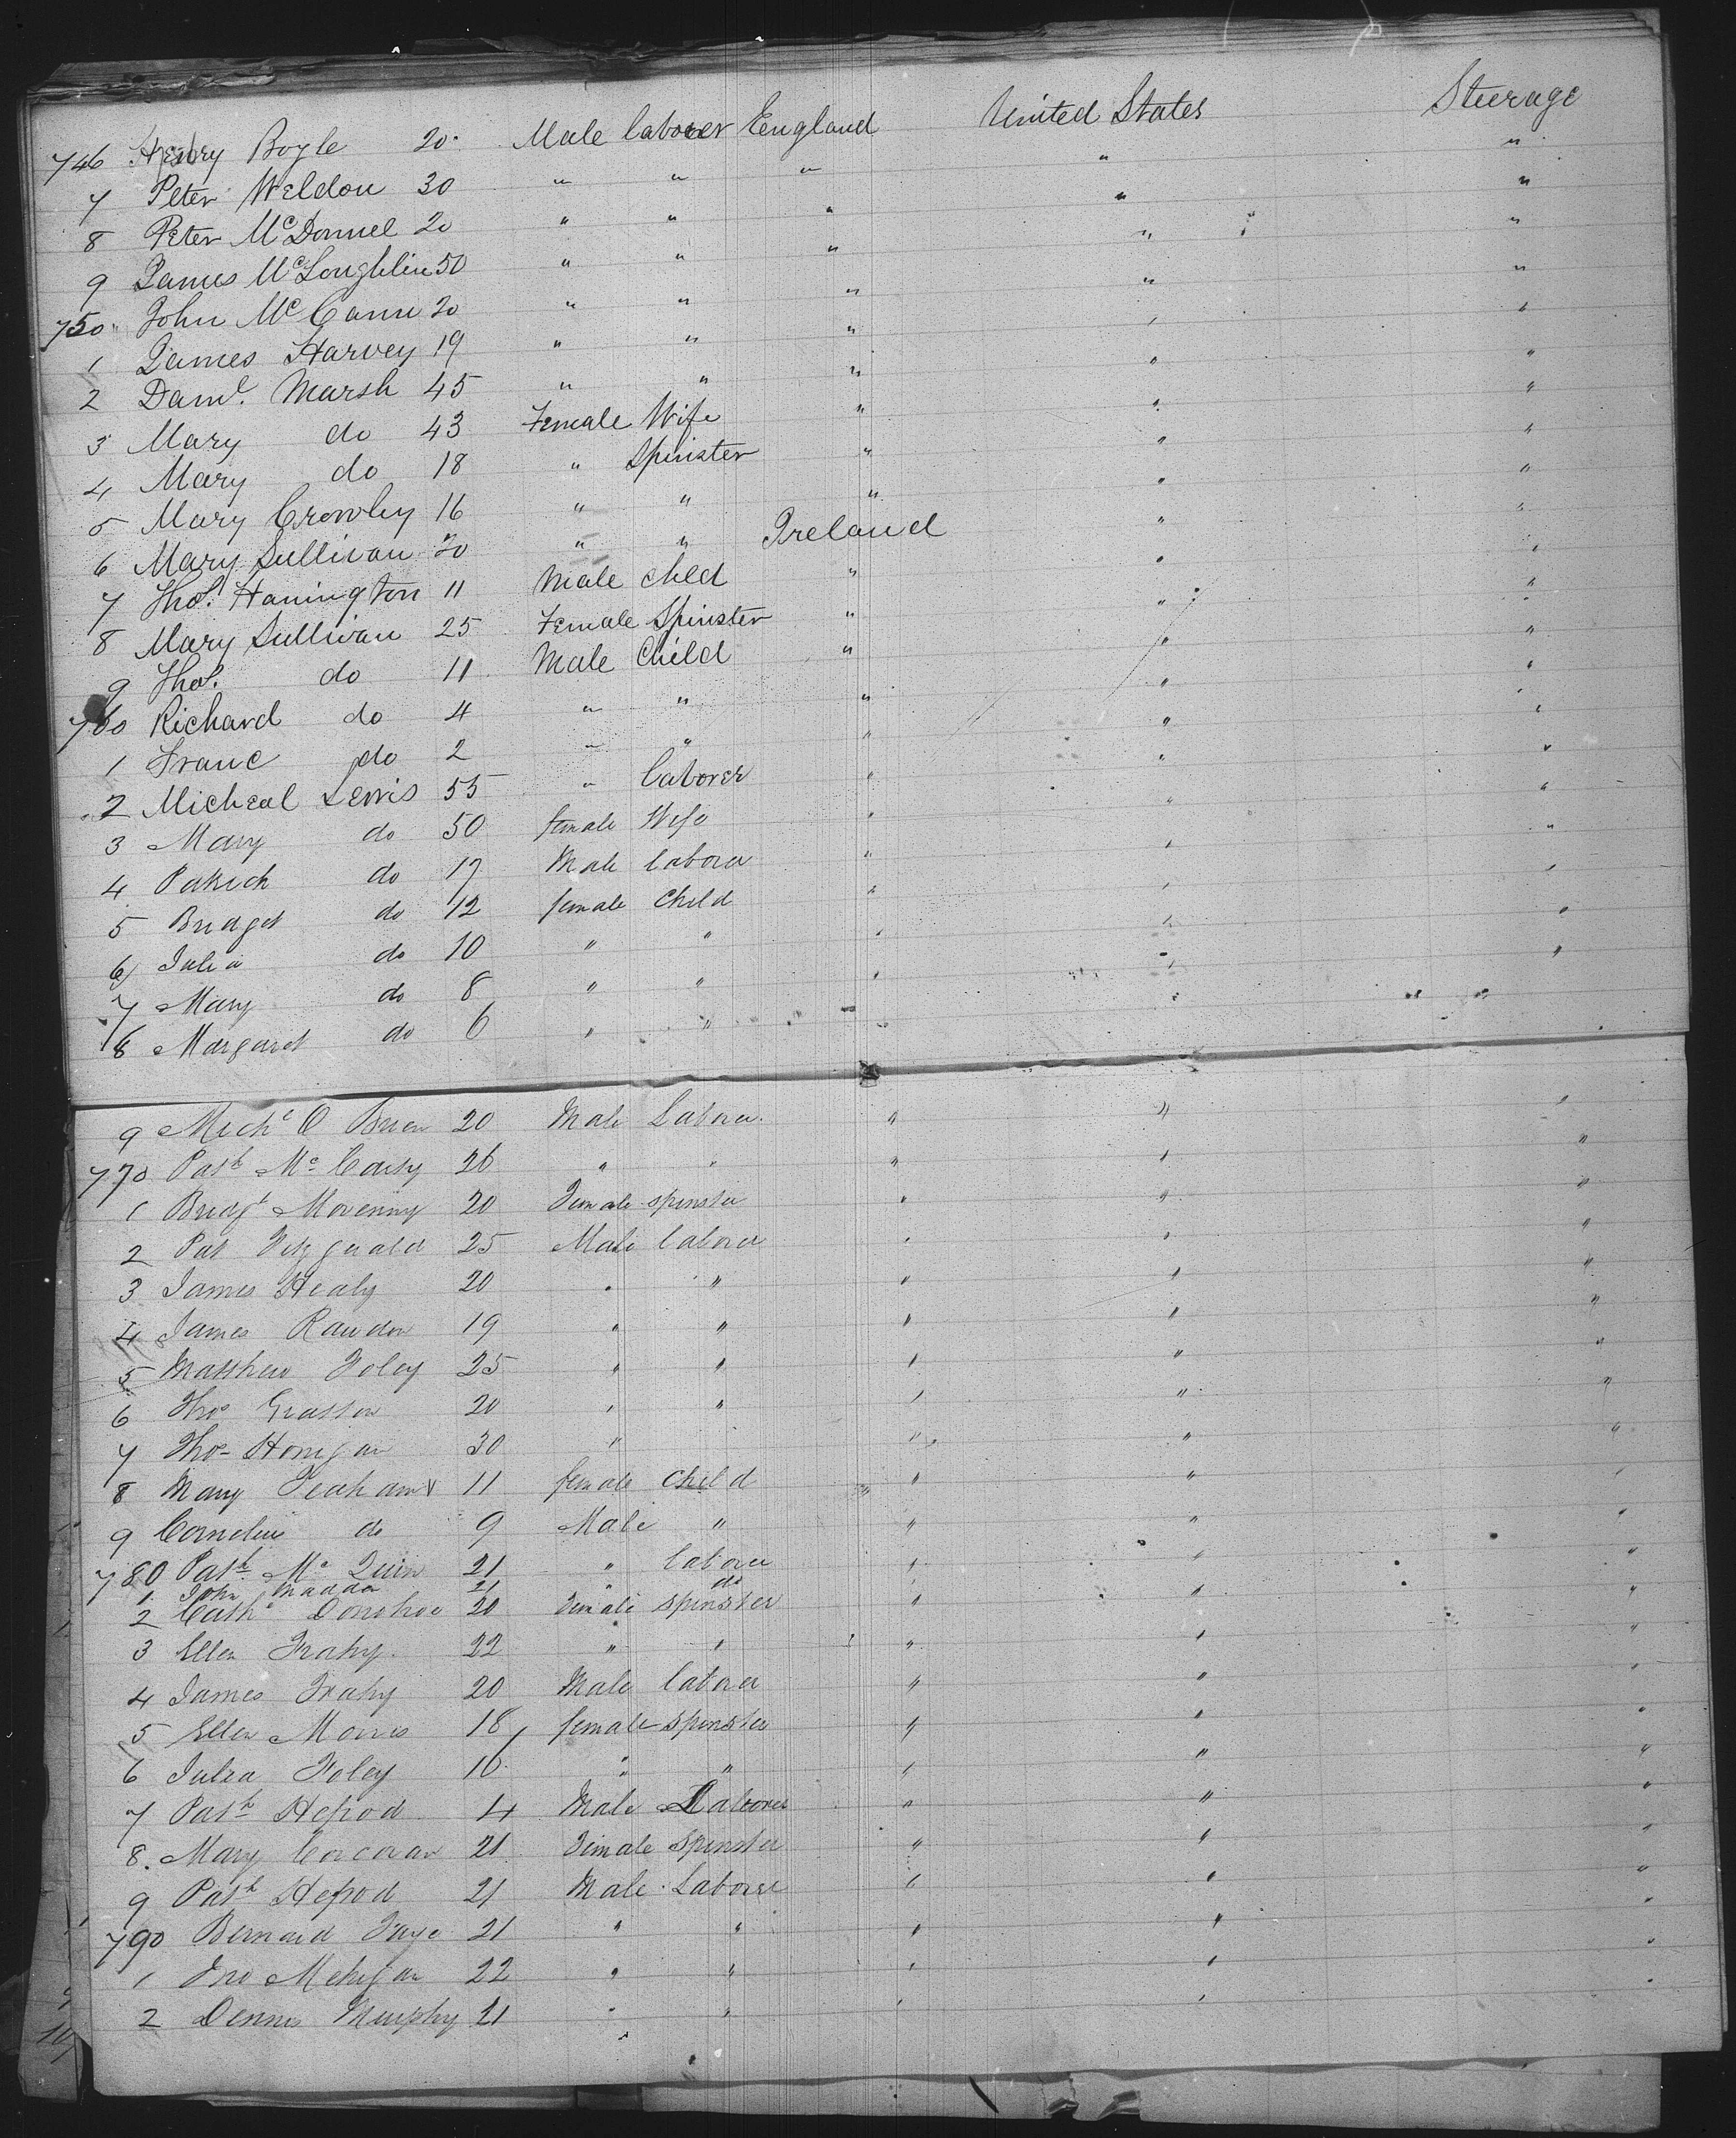 746 Henry Boyle 20 Male laborer England United States Steerage
7 Peter Weldon 30 " " " " "
8 Peter McDonnel 20 " " " " "
9 James McLoughlin 50 " " " " "
750 John McCann 20 " " " " "
1 James Harvey 19 " " " " "
2 Danl. Marsh 45 " " " " "
3 Mary do 43 Female Wife " " "
4 Mary do 18 " Spinster " " "
5 Mary Crowley 16 " " " " "
6 Mary Sullivan 20 " " Ireland " "
7 Thos. Hanington 11 Male child " " "
8 Mary Sullivan 25 Female Spinster " " "
9 Thos. do 11 Male Child " " "
760 Richard do 4 " " " " "
1 Franc do 2 " " " " "
2 Micheal Lewis 55 " laborer " " "
3 Mary do 50 female Wife " " "
4 Patrick do 17 Male laborer " " "
5 Bridget do 12 female child " " "
6 Julia do 10 " " " " "
7 Mary do 8 " " " " "
8 Margaret do 6 " " " "
9 Michl O Brien 20 Male Laborer " " "
770 Patk Mc Carty 26 " " " " "
1 Bridgt 20 Female spinster " " "
2 Pat Fitzgerald 25 Male laborer " " "
3 James Healy 20 " " " " "
4 James 19 " " " " "
5 Matthew Foley 25 " " " " "
6 Thos 20 " " " " "
7 Thos Honigan 30 " " " "
8 Mary 11 female child " " "
9 Cornelius do 9 Male " " " "
780 Patk Mc Quin 21 " laborer " " "
1 John Madden 21 " do
2 Cathe Donohoe 20 Female spinster " " "
3 Ellen Frahy 22 " " " " "
4 James Frahy 20 Male laborer " " "
5 Ellen Morris 18 female spinster " " "
6 Julia Foley 16 " " " " "
7 Patk Hefrod 4 Male Laborer " " "
8. Mary Corcoran 21 Female Spinster " " "
9 Patk Hefrod 21 Male Laborer " " "
790 Bernard 21 " " " " "
1 Jno Mehigan 22 " " " " "
2 Dennis Murphy 21 " " " " "